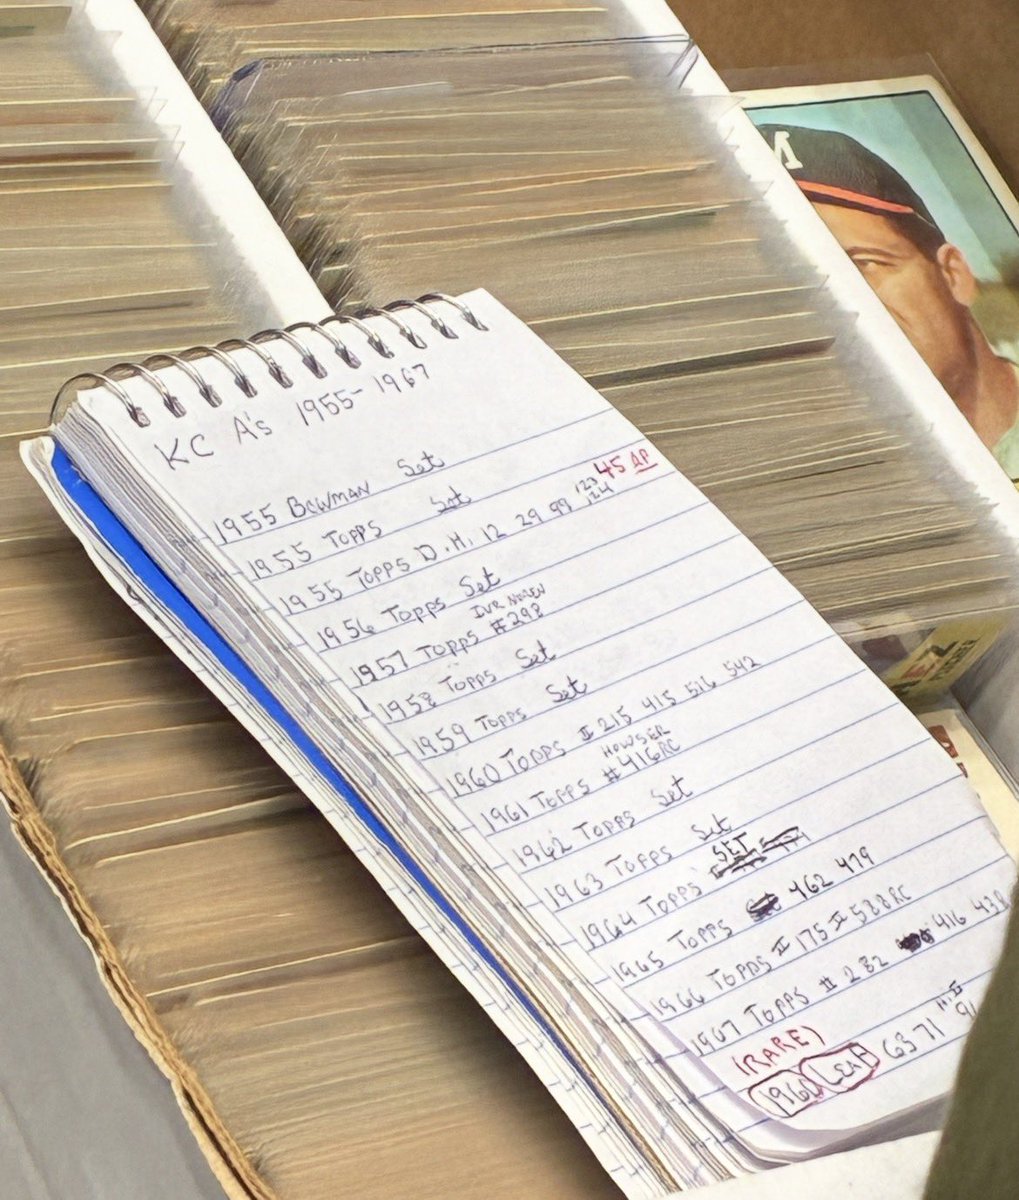 M
KC A's 1955-1967
1955 BOWMAN Set
1955 TOPPS Set
1955 TOPPS D.H. 12 29 99 123 124 45 AP
1956 TOPPS Set
1957 TOPPS #298 IVR NOREN
1958 TOPPS Set
1959 TOPPS Set
1960 TOPPS # 215 415 516 542
1961 TOPPS #416RC HOWSER
1962 TOPPS Set
1963 TOPPS Set
1964 TOPPS SET
1965 TOPPS 462 479
1966 TOPPS # 175 # 588RC
1967 TOPPS # 282 416 438
(RARE)
1960 LEAF 63 71 91